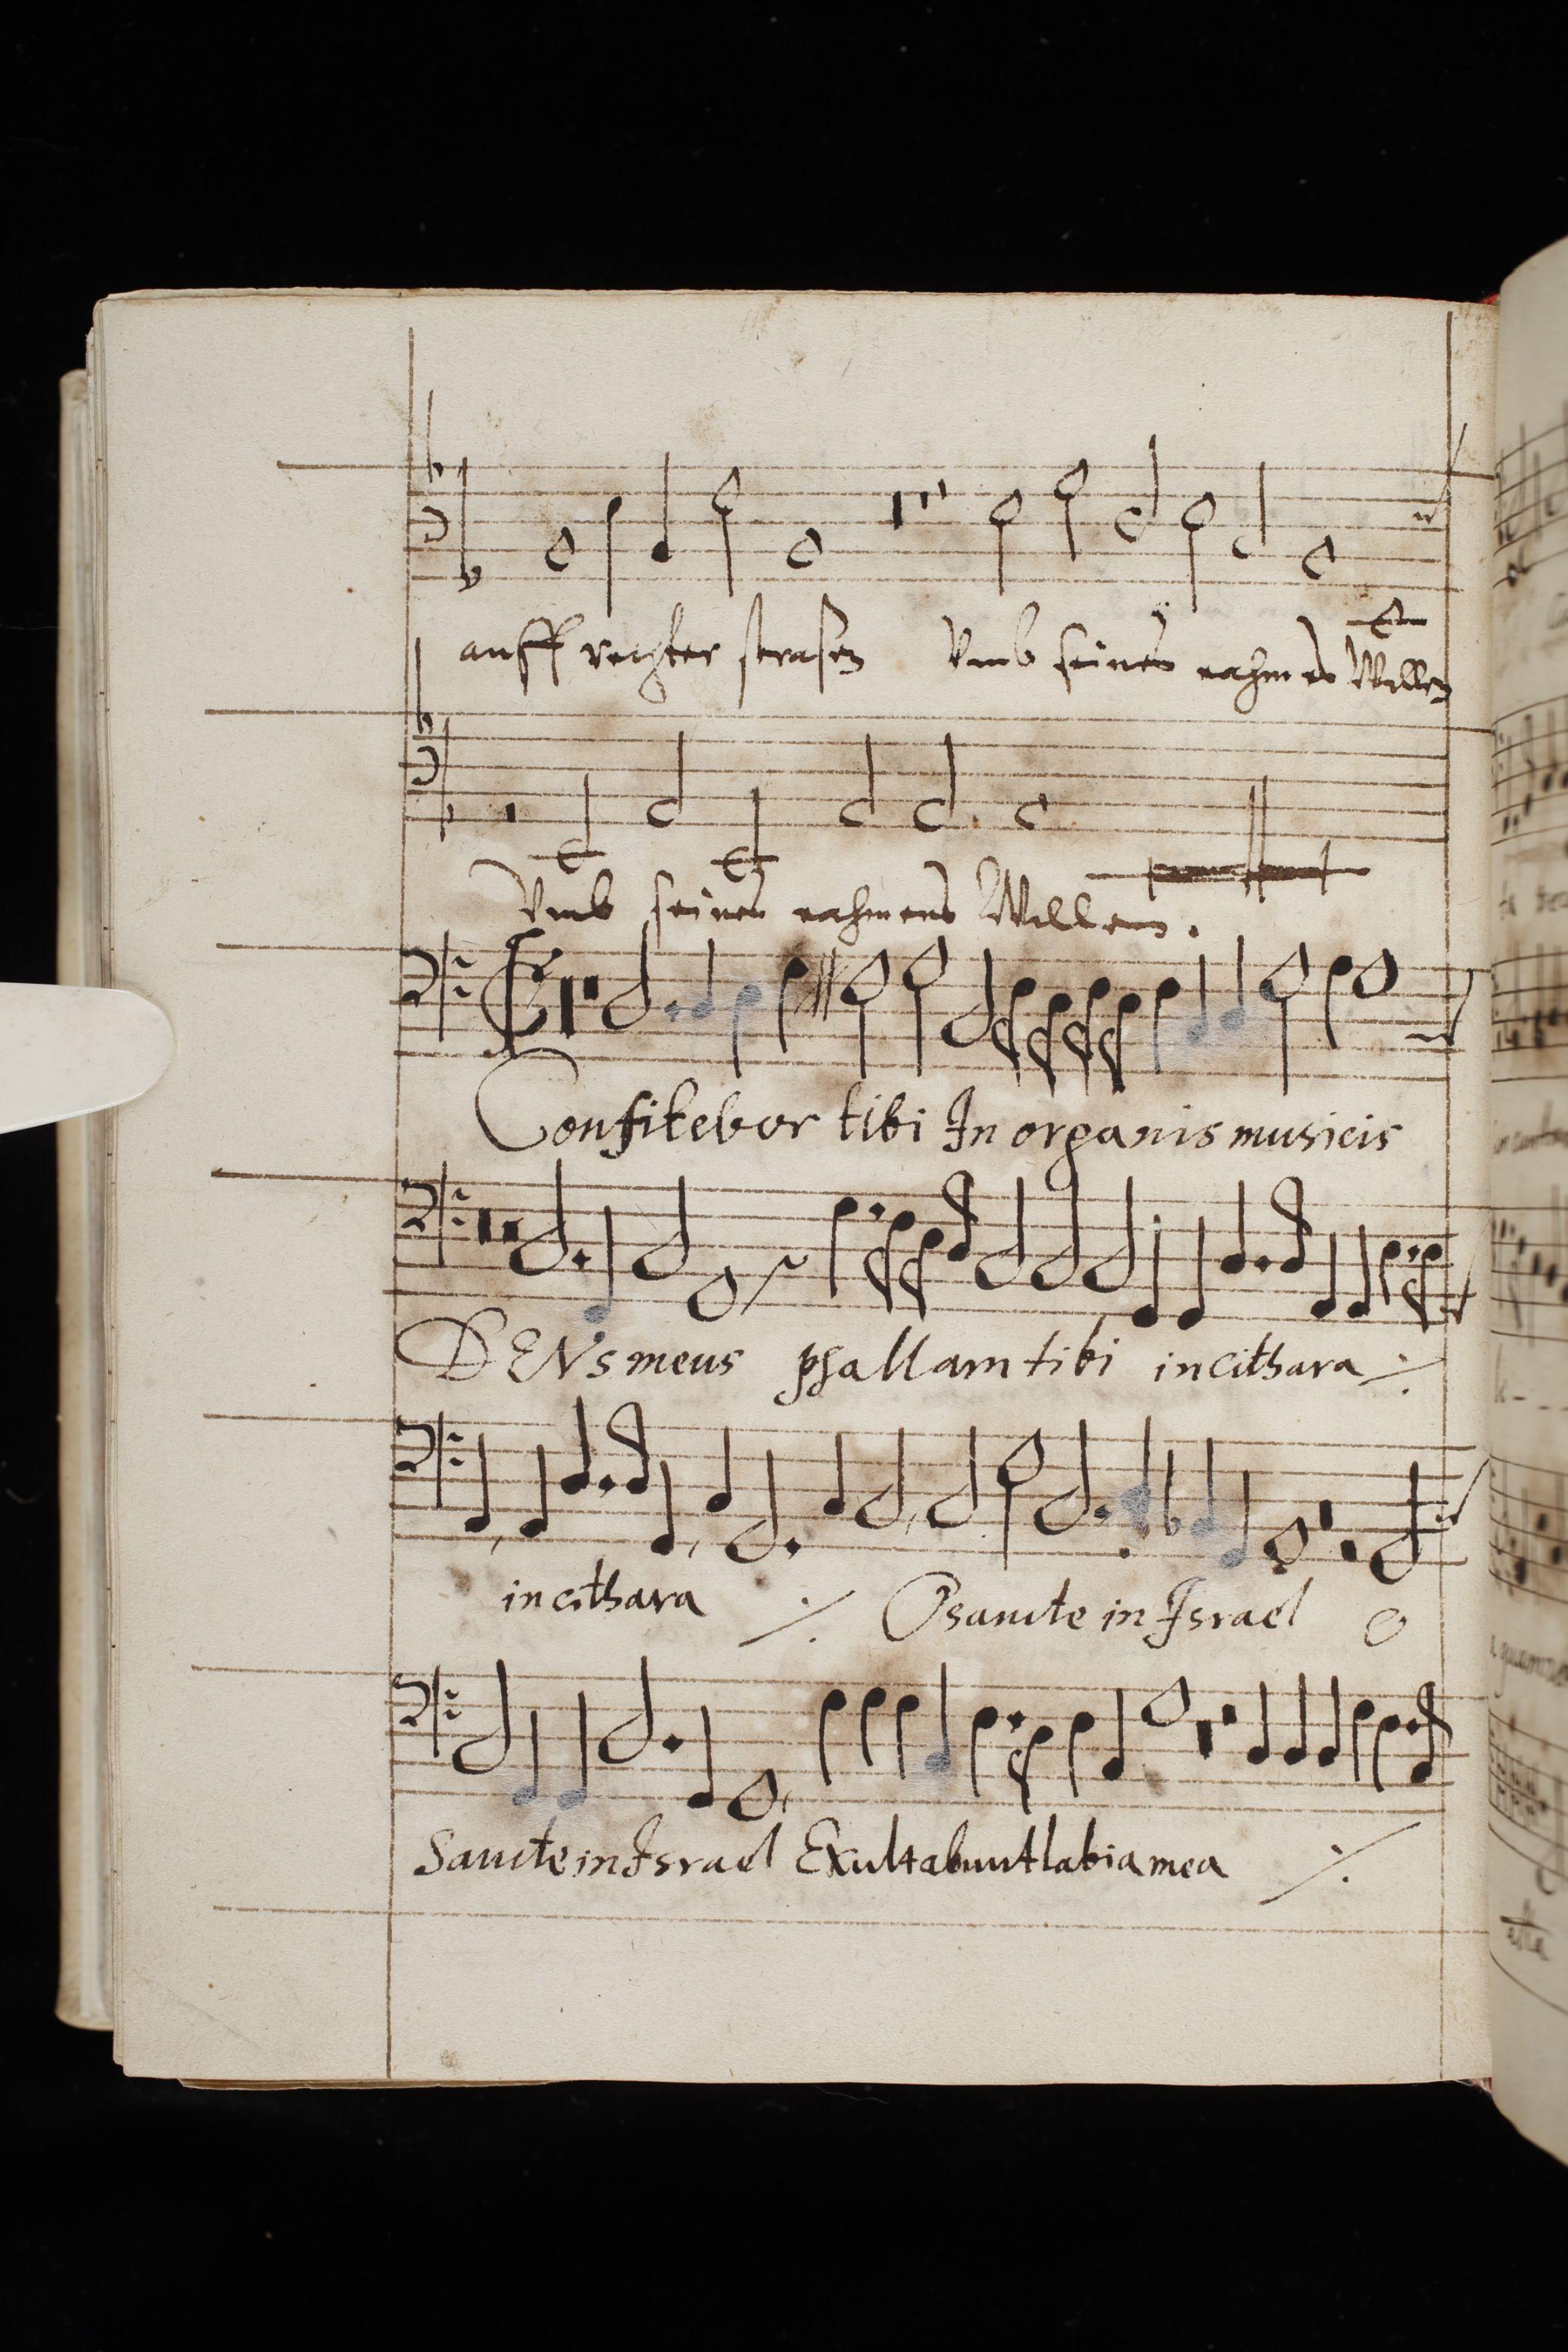 auff rechter strasen Vmb seines nahmes Willen
Vmb seines nahmens Willen.
Confitebor tibi In organis musicis
DENs meus psallam tibi in cithara ⁒
in cithara ⁒ O sancte in Israel O
Sancte in Israel Exultabunt labia mea ⁒